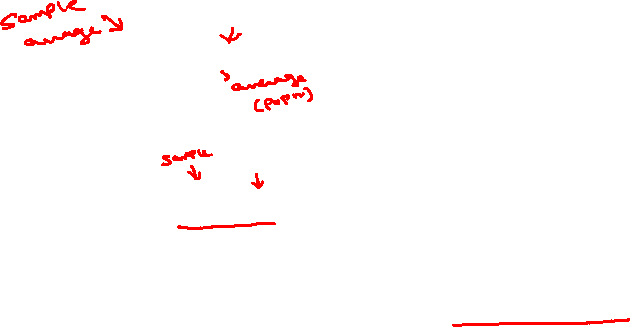 Sample
average
average
(popn)
sample